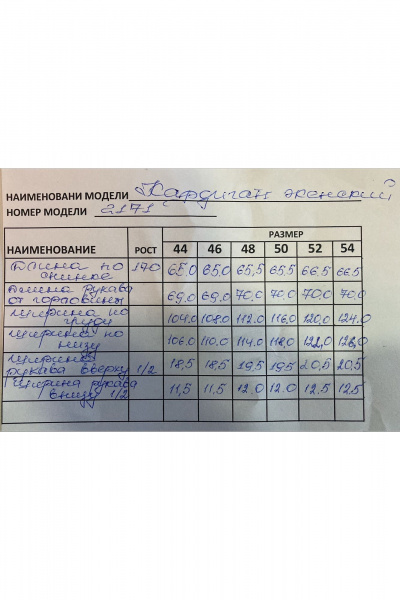 НАИМЕНОВАНИ МОДЕЛИ Кардиган женский
НОМЕР МОДЕЛИ 2171
РАЗМЕР
НАИМЕНОВАНИЕ РОСТ 44 46 48 50 52 54
Длина по спинке 170 65,0 65,0 65,5 65,5 66,5 66,5
Длина рукава от горловины 69,0 69,0 70,0 70,0 70,0 70,0
Ширина по груди 104,0 108,0 112,0 116,0 120,0 124,0
Ширина по низу 106,0 110,0 114,0 118,0 122,0 126,0
Ширина рукава вверху 1/2 18,5 18,5 19,5 19,5 20,5 20,5
Ширина рукава внизу 1/2 11,5 11,5 12,0 12,0 12,5 12,5